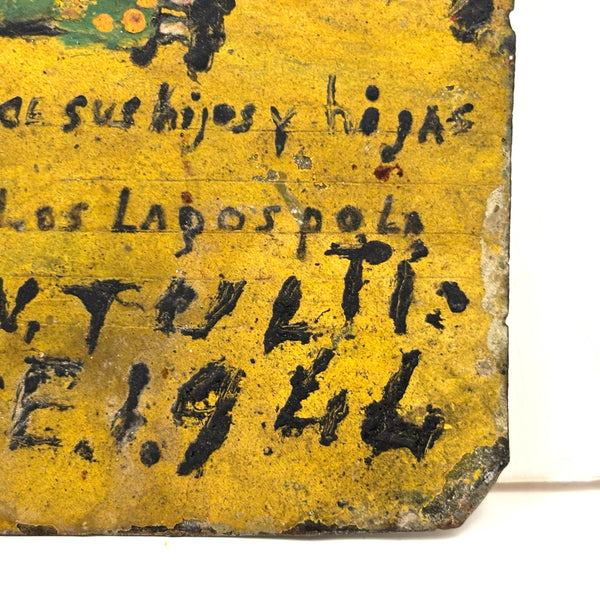 DE sus hijos y hijas
Los Lagos pola
N, TULTI.
E. 1.944